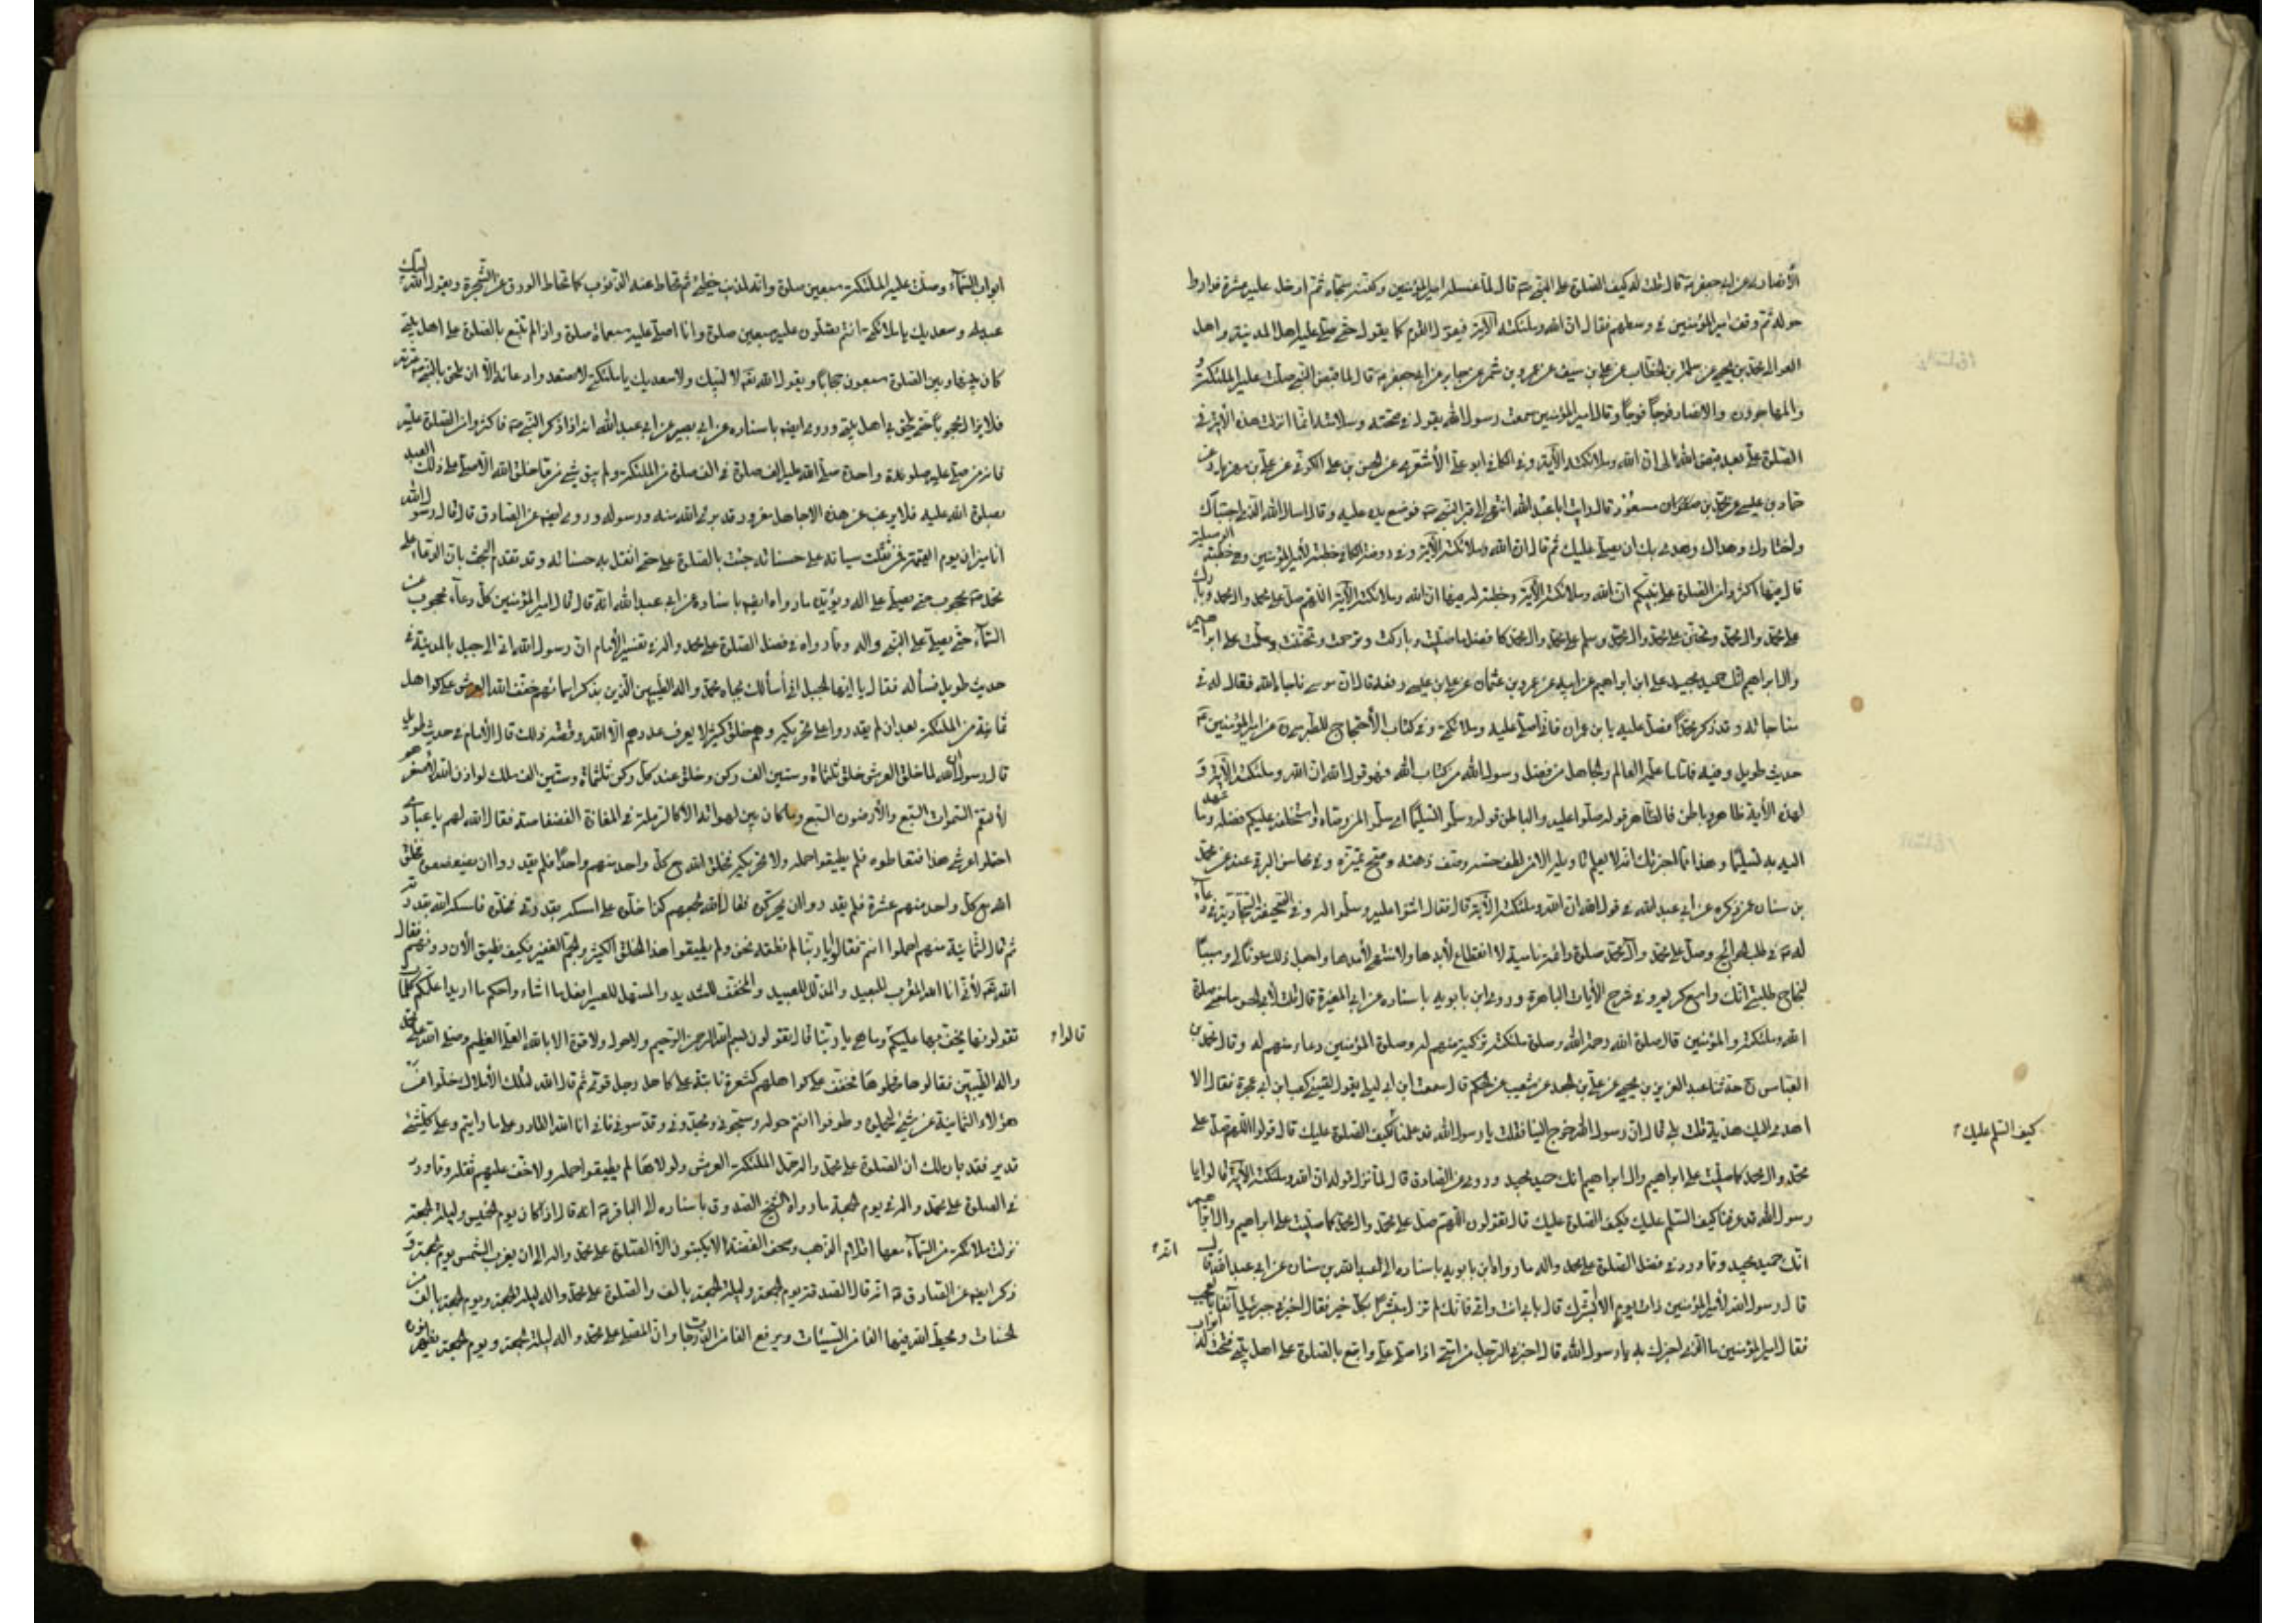 الأنصاري عن ابي جعفر ع قال قلت له كيف الصلوة على النبي ص قال لما غسله امير المؤمنين وكفنه سجاه ثم ادخل عليه عشرة فداروا
حوله ثم وقف امير المؤمنين في وسطهم فقال ان الله وملئكته الآية فيقول القوم كما يقول حتى صلى عليه اهل المدينة واهل
العوالي محمد بن يحيى عن سلمة بن الخطاب عن علي بن سيف عن عمرو بن شمر عن جابر عن ابي جعفر ع قال لما قبض النبي صلت عليه الملئكة
والمهاجرون والانصار فوجا فوجا وقال امير المؤمنين سمعت رسول الله يقول في صحته وسلامته انما انزلت هذه الآية في
الصلوة علي بعد قبض الله لي ان الله وملائكته الآية وفي الكافي ابو علي الأشعري عن الحسن بن علي الكوفي عن علي بن مهزيار عن
حماد بن عيسى عن محمد بن مسعود قال رايت ابا عبد الله انتهى الى قبر النبي ص فوضع يده عليه وقال اسال الله الذي اجتباك
واختارك وهداك وهدى بك ان يصلي عليك ثم قال ان الله وملائكته الآية وفي روضة الكافي خطبة لأمير المؤمنين وهي خطبة الوسيلة
قال فيها اكثروا من الصلوة على نبيكم ان الله وملائكته الآية وخطبة له فيها ان الله وملائكته الآية اللهم صل على محمد وال محمد وبارك
على محمد وال محمد وتحنن على محمد وال محمد وسلم على محمد وال محمد كافضل ما صليت وباركت وترحمت وتحننت وسلمت على ابراهيم
وال ابراهيم انك حميد مجيد علي بن ابراهيم عن ابيه عن عمرو بن عثمان عن علي بن عيسى رفعه قال ان موسى ناجاه الله فقال له في
مناجاته وقد ذكر محمدا فصل عليه يا بن عمران فاني اصلي عليه وملائكتي وفي كتاب الأحتجاج للطبرسي عن امير المؤمنين ع
حديث طويل وفيه فاما ما علمه العالم والجاهل من فضل رسول الله من كتاب الله فهو قول الله ان الله وملئكته الآية و
لهذه الأية ظاهر وباطن فالظاهر قوله صلوا عليه والباطن قوله وسلموا تسليما اي سلموا لمن وصاه واستخلفه عليكم فضله وما عهد
اليه به تسليما وهذا مما اخبرتك انه لا يعلم تاويله الا من لطف حسه وصفى ذهنه وصح تميزه وفي محاسن البرقي عنه عن محمد
بن سنان عن ذكره عن ابي عبد الله في قول الله ان الله وملئكته الآية قال فقال اثنوا عليه وسلموا له وفي الصحيفة السجادية في دعائه
له ع في طلب الحوائج وصل على محمد وآل محمد صلوة دائمة نامية لا انقطاع لأبدها ولا منتهى لأمدها واجعل ذلك عونا لي وسببا
لنجاح طلبتي انك واسع كريم وفي خرج الأيات الباهرة وروى ابن بابويه باسناده عن ابي المغيرة قال قلت لأبي الحسن ما معنى صلوة
الله وملئكته والمؤمنين قال صلوة الله رحمة الله وصلوة ملئكته تزكية منهم له وصلوة المؤمنين دعاء منهم له وقال محمد بن
العباس ع حدثنا عبد العزيز بن يحيى عن علي بن الجعد عن شعيب عن الحكم قال سمعت ابن ابي ليلى يقول لقيني كعب ابن ابي عجرة فقال الا
اهدى اليك هدية قلت بلى قال ان رسول الله خرج الينا فقلت يا رسول الله قد علمنا فكيف الصلوة عليك قال قولوا اللهم صل على
كيف السلم عليك
محمد وال محمد كما صليت على ابراهيم وال ابراهيم انك حميد مجيد وروى عن الصادق قال لما نزل قوله ان الله وملئكته الآية قالوا يا
رسول الله قد عرفنا كيف السلم عليك فكيف الصلوة عليك قال تقولون اللهم صل على محمد وال محمد كما صليت على ابراهيم وال ابراهيم
انك حميد مجيد ومما ورد في فضل الصلوة على محمد واله ما رواه ابن بابويه باسناده الى عبد الله بن سنان عن ابي عبد الله قال
انه
قال رسول الله لأمير المؤمنين ذات يوم الا ابشرك قال بابي انت وامي فانك لم تزل مبشرا بكل خير فقال اخبرني جبرئيل آنفا بالعجب
فقال امير المؤمنين ما الذي اخبرك به يا رسول الله قال اخبرني ان الرجل من امتي اذا صلى علي واتبع بالصلوة على اهل بيتي فتحت له ابواب
ابواب السماء وصلت عليه الملئكة سبعين صلوة وانه لمذنب خطئ ثم تحاط عنه الذنوب كما تحاط الورق عن الشجرة ويقول الله لبيك
عبدي وسعديك يا ملائكتي انتم تصلون عليه سبعين صلوة وانا اصلي عليه سبعمائة صلوة واذا لم تتبع بالصلوة على اهل بيتي
كان بينها وبين الصلوة سبعون حجابا ويقول الله تعه لا لبيك ولا سعديك يا ملئكتي لا تصعدوا دعائه الا ان يلحق بالنبي ص عترته
فلا يزال محجوبا حتى يلحق بي اهل بيتي وروى ايضه باسناده عن ابي بصير عن ابي عبد الله انه اذا ذكر النبي ص فاكثروا من الصلوة عليه
فانه من صلى عليه صلوة واحدة صلى الله عليه الف صلوة في الف صف من الملئكة ولم يبق شيء مما خلق الله الا صلى على ذلك العبد
بصلوة الله عليه فلا يرغب عن هذه الا جاهل مغرور قد برى الله منه ورسوله وروى ايضه عن الصادق قال قال رسول الله
انا ميزان يوم القيمة فمن ثقلت سياته على حسناته جئت بالصلوة علي حتى اثقل به حسناته وقد تقدم البحث بان الدعاء على
محمد ص محجوب حتى يصلى على اله ويؤيده ما رواه ايضه باسناده عن ابي عبد الله انه قال قال امير المؤمنين كل دعاء محجوب عن
السماء حتى يصلى على النبي واله ومما رواه في فضل الصلوة على محمد واله في تفسير الأمام ان رسول الله اتى الى جبل بالمدينة في
حديث طويل فسأله فقال يا ايها الجبل اني أسألك بجاه محمد واله الطيبين الذين بذكر اسمائهم خفف الله العرش على كواهل
ثمانية من الملئكة بعد ان لم يقدروا على تحريكه وهم خلق كثير لا يعرف عددهم الا الله وقصة ذلك قال الأمام في حديث طويل
قال رسول الله ان الله لما خلق العرش خلق ثلثمائة وستين الف ركن وخلق عند كل ركن ثلثمائة وستين الف ملك لو اذن الله لاصغرهم
لألتقم السموات السبع والأرضون السبع وما كان بين لهواته الا كالرملة في المفازة الفضفاضة فقال الله لهم يا عبادي
احتملوا عرشي هذا فتعاطوه فلم يطيقوا حمله ولا تحريكه فخلق الله مع كل واحد منهم واحدا فلم يقدروا ان يضعضعوه فخلق
الله مع كل واحد منهم عشرة فلم يقدروا ان يحركوه فقال الله لجميعهم خلوه علي امسكه بقدرتي فخلوه فامسكه الله بقدرته
ثم قال لثمانية منهم احملوا انتم فقالوا يا ربنا لم نطقه نحن ولم يطيقوا هذا الخلق الكثير والجم الغفير فكيف نطيق الأن دونهم فقال
الله تعه لأني انا الله المقرب للبعيد والمذلل للعبيد والمخفف للشديد والمسهل للعسير افعل ما اشاء واحكم ما اريد اعلمكم كلمات
تقولونها يخفف بها عليكم وما هي يا ربنا قال تقولون بسم الله الرحمن الرحيم ولا حول ولا قوة الا بالله العلي العظيم وصلى الله على محمد
قالوا
واله الطيبين فقالوها فحملوها فخففت على كواهلهم كشعرة نابتة على كاهل رجل قوي ثم قال الله لتلك الأملاك خلوا عن
هؤلاء الثمانية عن شيء ليحملوه وطوفوا انتم حوله وسبحوني ومجدوني وقدسوني فاني انا الله القادر على ما رايتم وعلى كل شيء
قدير فقد بان لك ان الصلوة على محمد واله حمل الملئكة العرش ولولاها لم يطيقوا حمله ولا خف عليهم ثقله ومما ورد
في الصلوة على محمد واله في يوم الجمعة ما رواه الشيخ الصدوق باسناده الى الباقر ع انه قال اذا كان يوم الخميس وليلة الجمعة
نزلت ملائكة من السماء معها اقلام الذهب وصحف الفضة لا يكتبون الا الصلوة على محمد واله الى ان يغرب الشمس يوم الجمعة و
ذكر ايضه عن الصادق ع انه قال الصدقة يوم الجمعة وليلة الجمعة بالف والصلوة على محمد واله ليلة الجمعة ويوم الجمعة بالف من
الحسنات ويحيط الله فيها الفا من السيئات ويرفع الفا من الدرجات وان المصلي على محمد واله ليلة الجمعة ويوم الجمعة يظهر نوره